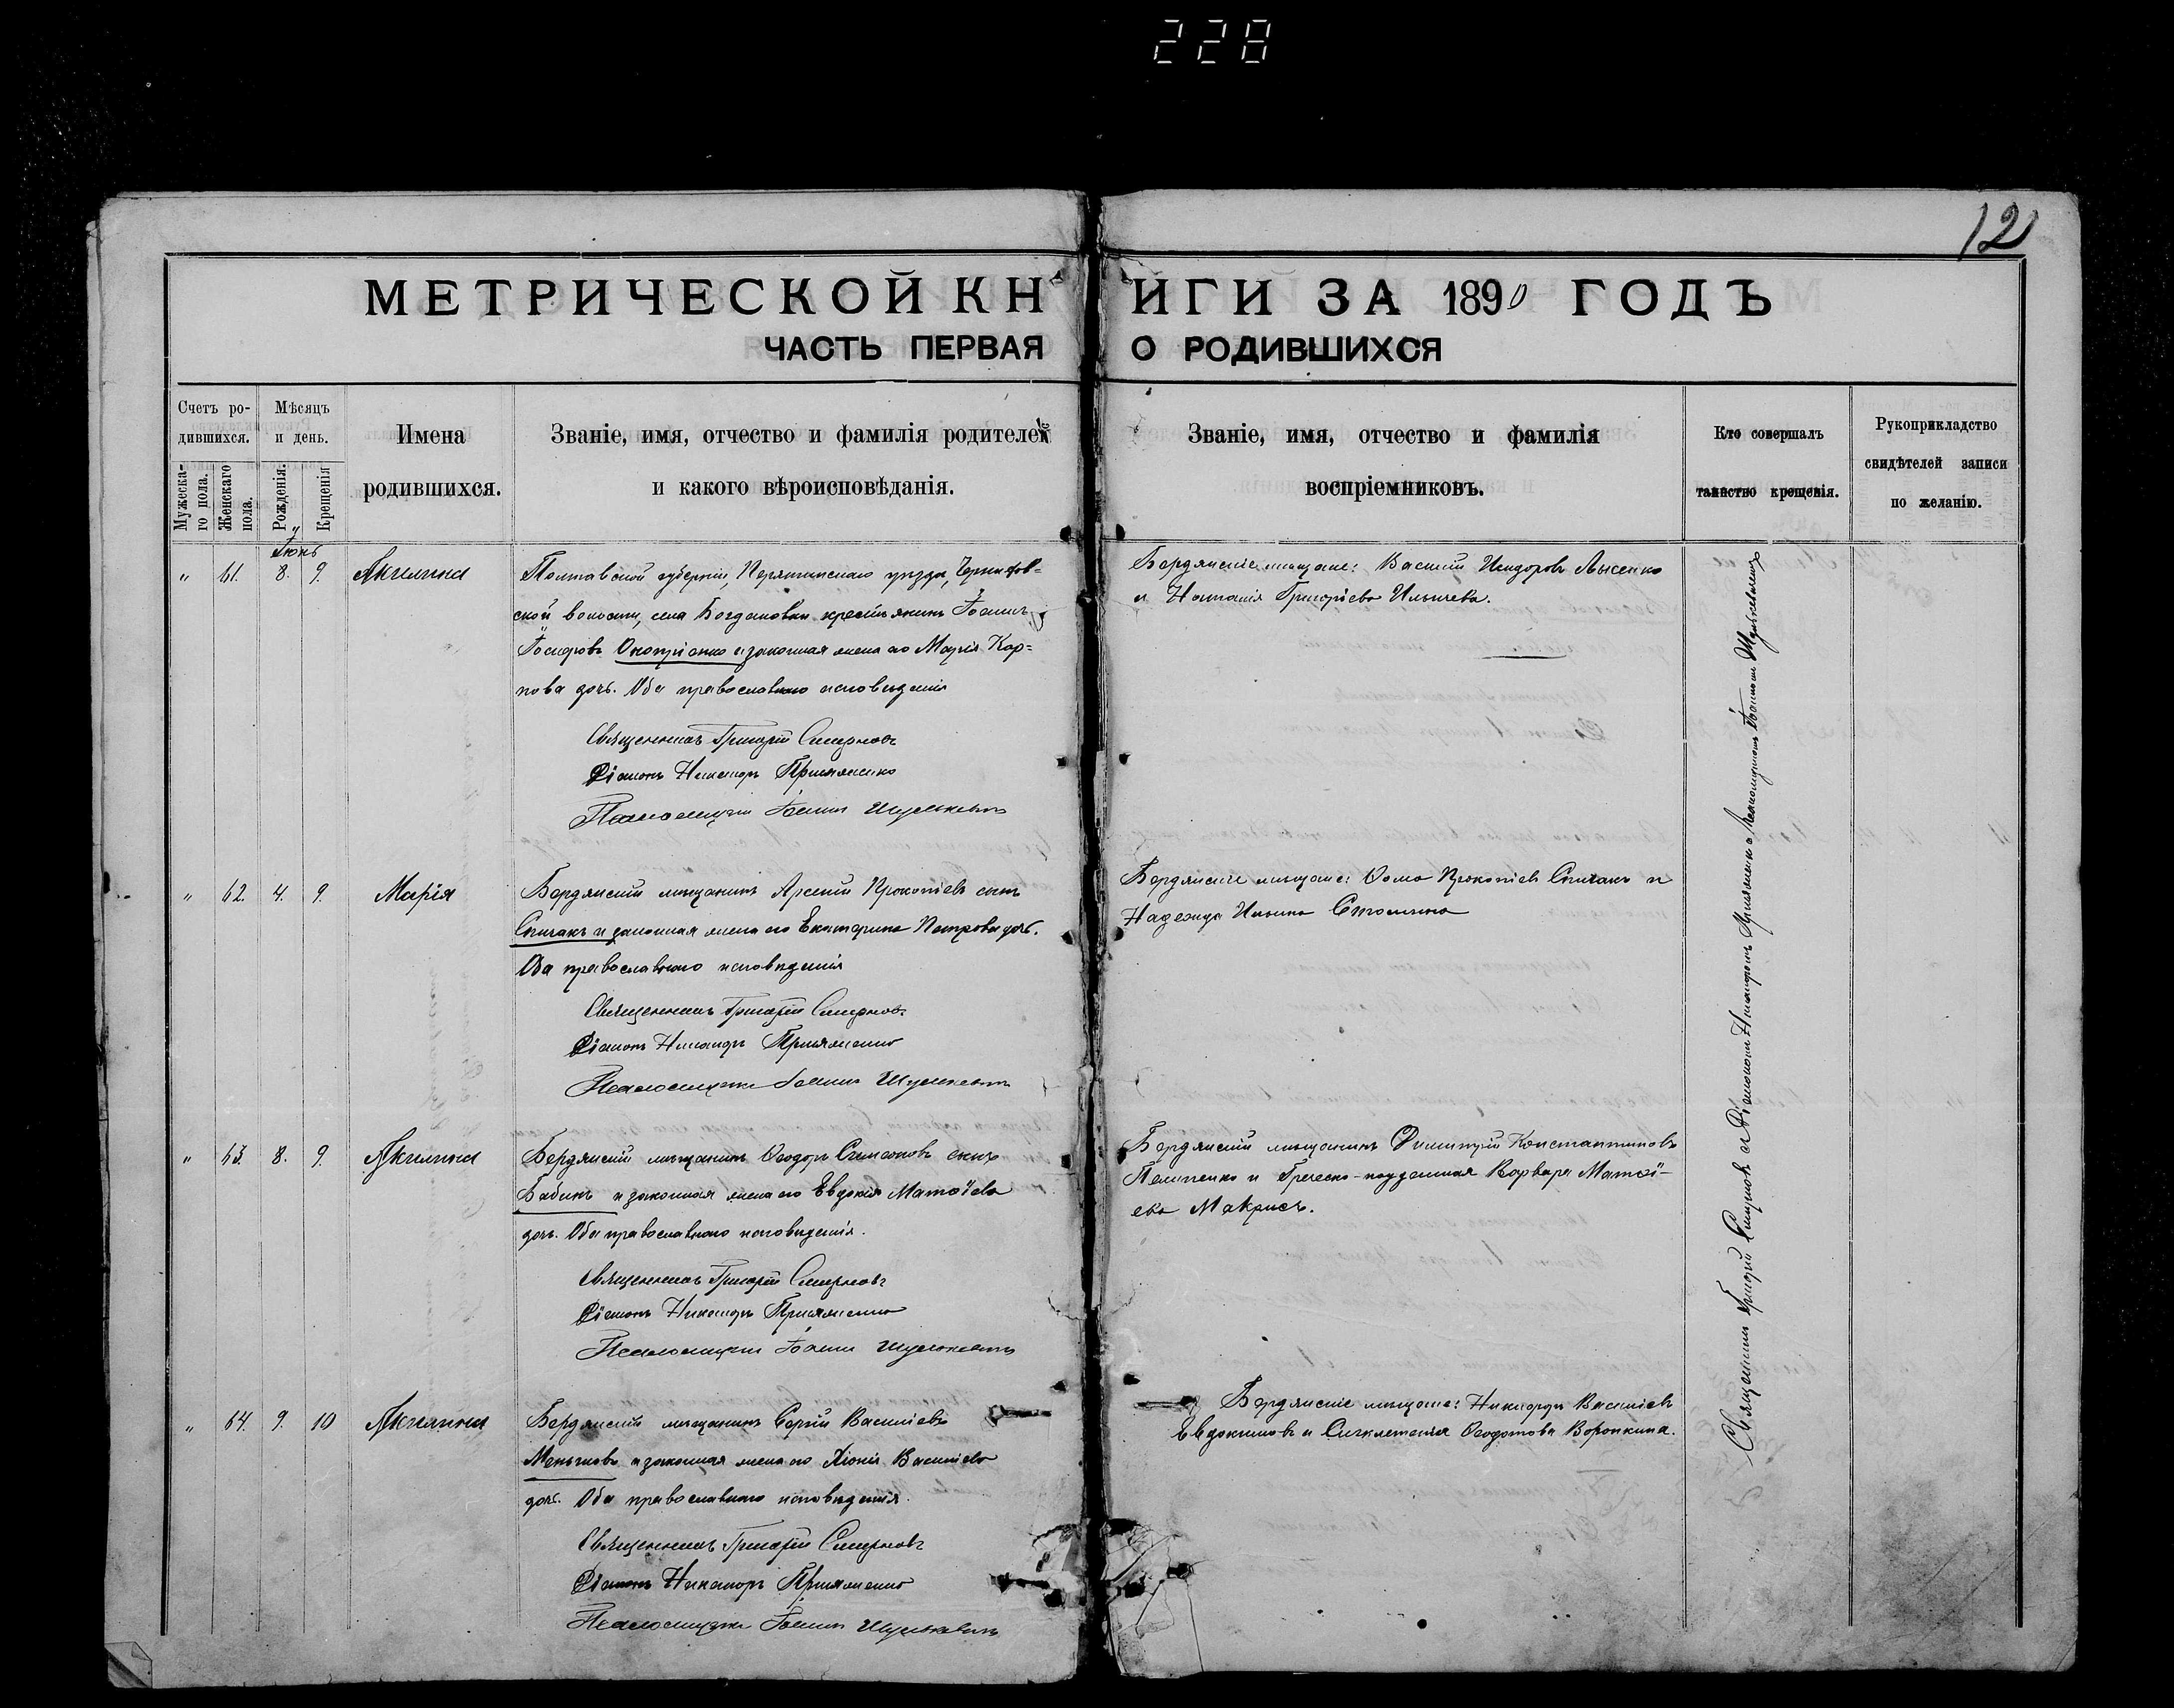 228
121
МЕТРИЧЕСКОЙ КНИГИ ЗА 1890 ГОДЪ
ЧАСТЬ ПЕРВАЯ О РОДИВШИХСЯ
Счетъ ро-
дившихся.
Мужеска-
го пола.
Женскаго
пола.
Мѣсяцъ
и день.
Рожденія.
Крещенія
Имена
родившихся.
Званіе, имя, отчество и фамилія родителей
и какого вѣроисповѣданія.
Званіе, имя, отчество и фамилія
воспріемниковъ.
Кто совершалъ
таинство крещенія.
Рукоприкладство
свидѣтелей записи
по желанію.
Іюнь
" 61. 8. 9. Акилина
Полтавской губерніи, Пирятинскаго уѣзда,
ской волости, села Богдановки крестьянинъ Іоаннъ
Іосифовъ Оноприенко и законная жена его Марія Кар-
пова дочь. Оба православнаго исповѣданія
Священникъ Григорій Смирновъ
Діаконъ Никаноръ Пришляменко
Псаломщикъ Іоаннъ Шулькевичъ
Бердянскіе мѣщане: Василій Исидоровъ Лысенко
и Наталія Григоріева Ильичева.
" 62. 4. 9. Марія
Бердянскій мѣщанинъ Арсеній Прокопіевъ сынъ
Спичакъ и законная жена его Екатерина Петрова дочь.
Оба православнаго исповѣданія
Священникъ Григорій Смирновъ
Діаконъ Никаноръ
Псаломщикъ Іоаннъ Шулькевичъ
Бердянскіе мѣщане: Ѳома Прокопіевъ Спичакъ и
Надежда Ильина
" 63. 8. 9. Акилина
Бердянскій мѣщанинъ Ѳеодоръ Симеоновъ сынъ
Бабичъ и законная жена его Евдокія Матѳіева
дочь. Оба православнаго исповѣданія.
Священникъ Григорій Смирновъ
Діаконъ Никаноръ
Псаломщикъ Іоаннъ Шулькевичъ
Бердянскій мѣщанинъ Димитрій Константиновъ
Пелипенко и Греческо-подданная Варвара Матѳі-
ева Макрисъ.
" 64. 9. 10 Акилина
Бердянскій мѣщанинъ Сергій Василіевъ
Меньшовъ и законная жена его Хіонія Василіева
дочь. Оба православнаго исповѣданія.
Священникъ Григорій Смирновъ
Діаконъ Никаноръ
Псаломщикъ Іоаннъ Шулькевичъ
Бердянскіе мѣщане: Никифоръ Василіевъ
Евдокимовъ и Синклетикія Ѳеодотова Воронкина.
Священникъ Григорій Смирновъ съ Діакономъ Никаноромъ и Псаломщикомъ Іоанномъ Шулькевичемъ